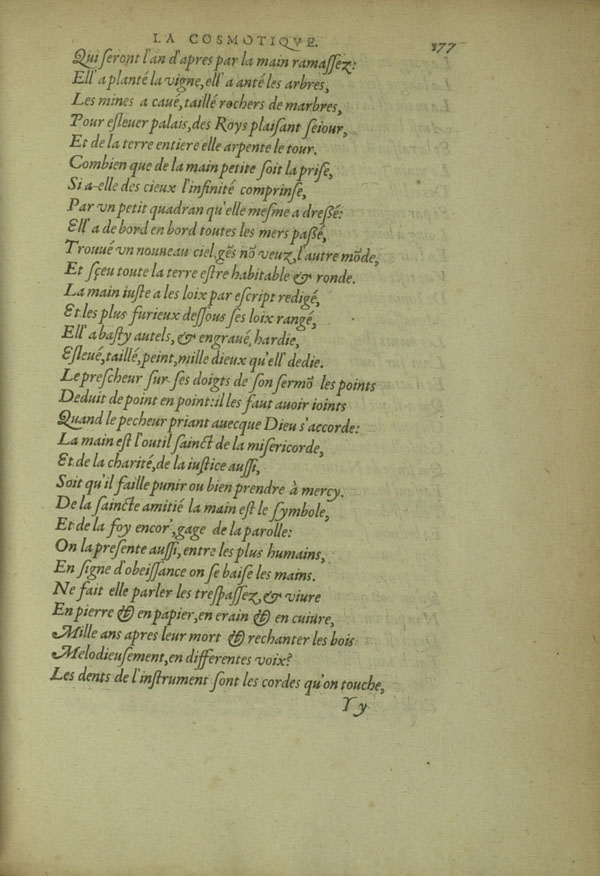 LA COSMOTIQVE. 177
Qui ſeront l'an d'apres par la main ramaſſez:
Ell' a planté la vigne, ell' a anté les arbres,
Les mines a caué, taillé rochers de marbres,
Pour eſleuer palais, des Roys plaiſant ſeiour,
Et de la terre entiere elle arpente le tour.
Combien que de la main petite ſoit la priſe,
Si a-elle des cieux l'infinité comprinſe,
Par vn petit quadran qu'elle meſme a dreſſé:
Ell' a de bord en bord toutes les mers paſſé,
Trouué vn nouueau ciel, gẽs nõ veuz, l'autre mõde,
Et ſçeu toute la terre eſtre habitable & ronde.
La main iuſte a les loix par eſcript redigé,
Et les plus furieux deſſous ſes loix rangé,
Ell' a baſty autels, & engraué, hardie,
Eſleué, taillé, peint, mille dieux qu'ell' dedie.
Le preſcheur ſur ſes doigts de ſon ſermõ les points
Deduit de point en point: il les faut auoir ioints
Quand le pecheur priant auecque Dieu s'accorde:
La main eſt l'outil ſainct de la miſericorde,
Et de la charité, de la iuſtice auſſi,
Soit qu'il faille punir ou bien prendre à mercy.
De la ſaincte amitié la main eſt le ſymbole,
Et de la foy encor', gage de la parolle:
On la preſente auſſi, entre les plus humains,
En ſigne d'obeiſſance on ſe baiſe les mains.
Ne fait elle parler les treſpaſſez, & viure
En pierre & en papier, en erain & en cuiure,
Mille ans apres leur mort & rechanter les bois
Melodieuſement, en differentes voix?
Les dents de l'inſtrument ſont les cordes qu'on touche,
Y y